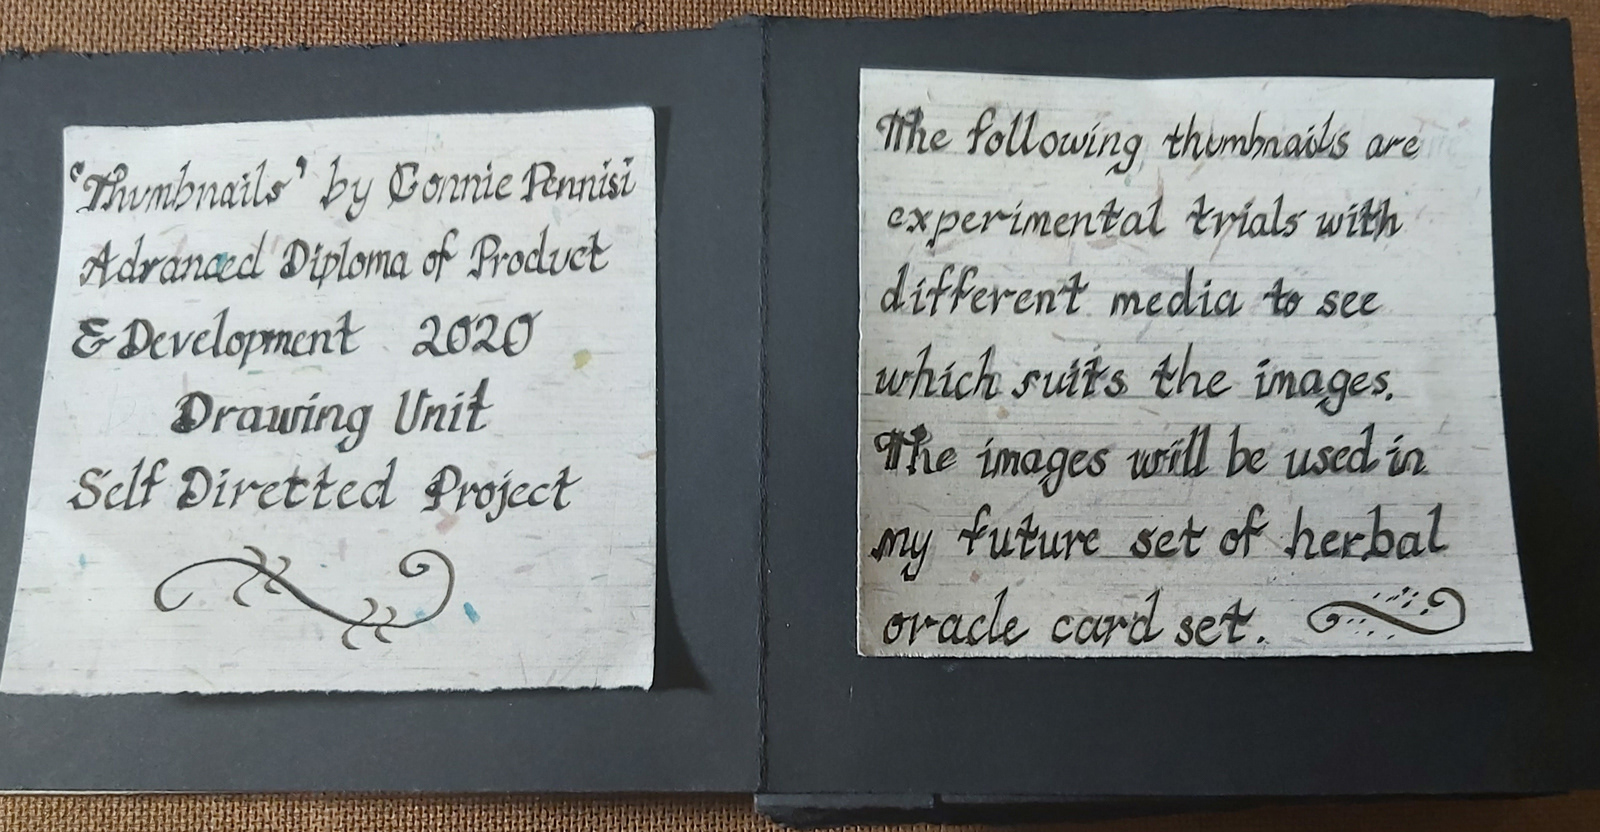 'Thumbnails' by Connie Pennisi
Advanced Diploma of Product
& Development 2020
Drawing Unit
Self Directed Project
The following thumbnails are
experimental trials with
different media to see
which suits the images.
The images will be used in
my future set of herbal
oracle card set.